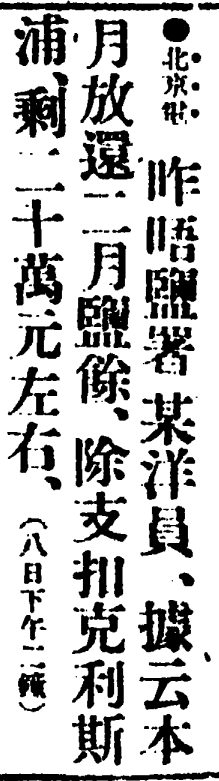 ●北京電　昨晤鹽署某洋員、據云本
月放還二月鹽餘、除支扣克利斯
浦、剩二十萬元左右、（八日下午二鐘）